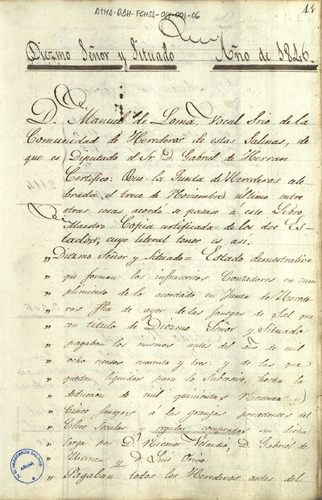 ATHA-DAH-FCHSA-011-001-06
Diezmo Señor y Situado Año de 1846.
D. Manuel de Loma Vocal Srio de la
Comunidad de Herederos de estas Salinas, de
que es Diputado el Sr. D. Gabriel de Herran
Certifico: Que la Junta de Herederos cele
brada el trece de Noviembre último entre
otras cosas acordó se pasase a este Libro
Maestro Copia certificada de los dos Es-
tados, cuyo literal tenor es asi.
Diezmo Señor y Situado = Estado demostrativo
" que forman los infrascritos Contadores en cum
" plimiento de lo acordado en Junta de Herede
" ros fha de ayer de las fanegas de Sal que
" con titulo de Diezmo Señor y Situado
" pagaban los mismos antes del año de mil
" ocho cientos cuarenta y tres: de las que
" quedan liquidas para lo subcesivo, hecha la
" deducion de mil quinientas Noventa y
" Cinco fanegas á las granjas procedentes del
" Clero Secular y regular compradas en dicha
" por D. Nicomedes D. Gabriel de
" Herran y D. Luis
" Pagaban todos los Herederos antes del